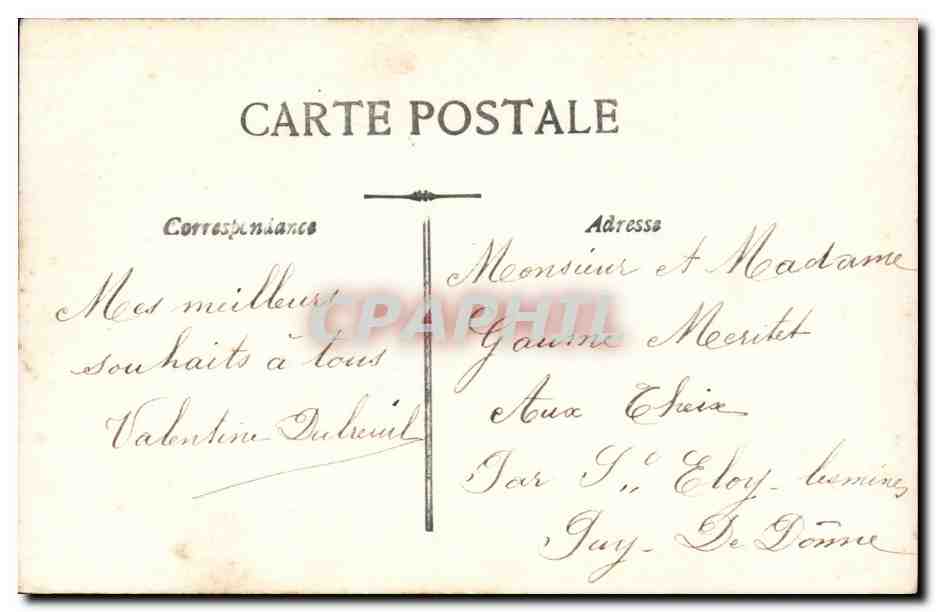 CARTE POSTALE
Correspondance
Adresse
Mes meilleurs
souhaits à tous
Valentine Dubreuil
Monsieur et Madame
Gaume Meritet
Aux Theix
Par St Eloy-lesmines
Puy-De Dôme
CPAPHIL